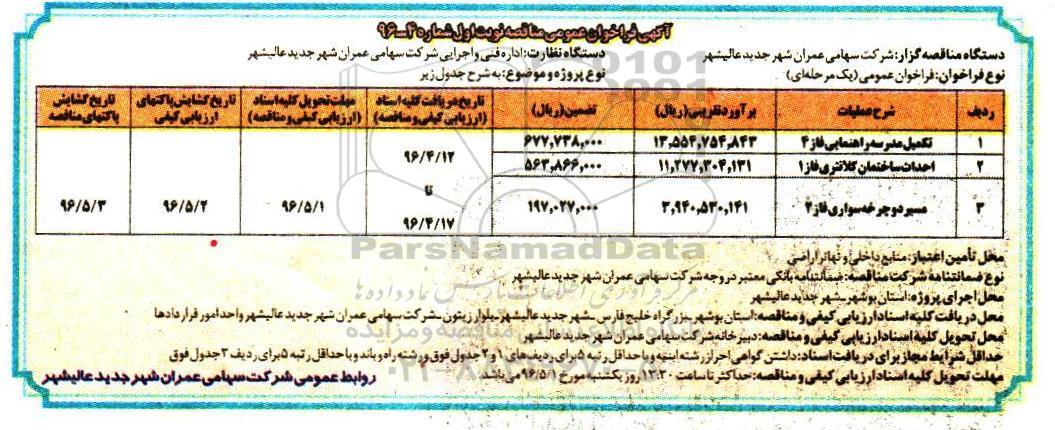 آگهی فراخوان عمومی مناقصه نوبت اول شماره ۴-۹۶
دستگاه مناقصه گزار: شرکت سهامی عمران شهر جدید عالیشهر
دستگاه نظارت: اداره فنی و اجرایی شرکت سهامی عمران شهر جدید عالیشهر
نوع فراخوان: فراخوان عمومی (یک مرحله‌ای)
نوع پروژه و موضوع: به شرح جدول زیر
ردیف | شرح عملیات | برآورد تقریبی (ریال) | تضمین (ریال) | تاریخ دریافت کلیه اسناد (ارزیابی کیفی و مناقصه) | مهلت تحویل کلیه اسناد (ارزیابی کیفی و مناقصه) | تاریخ گشایش پاکتهای ارزیابی کیفی | تاریخ گشایش پاکتهای مناقصه
۱ | تکمیل مدرسه راهنمایی فاز ۴ | ۱۳,۵۵۴,۷۵۴,۸۴۳ | ۶۷۷,۷۳۸,۰۰۰ | ۹۶/۴/۱۲ تا ۹۶/۴/۱۷ | ۹۶/۵/۱ | ۹۶/۵/۲ | ۹۶/۵/۳
۲ | احداث ساختمان کلانتری فاز ۱ | ۱۱,۲۷۷,۳۰۴,۱۳۱ | ۵۶۳,۸۶۶,۰۰۰
۳ | مسیر دوچرخه سواری فاز ۲ | ۳,۹۴۰,۵۳۰,۱۴۱ | ۱۹۷,۰۲۷,۰۰۰
محل تأمین اعتبار: منابع داخلی و تهاتر اراضی
نوع ضمانتنامه شرکت مناقصه: ضمانتنامه بانکی معتبر در وجه شرکت سهامی عمران شهر جدید عالیشهر
محل اجرای پروژه: استان بوشهر-شهر جدید عالیشهر
محل دریافت کلیه اسناد ارزیابی کیفی و مناقصه: استان بوشهر-بزرگراه خلیج فارس-شهر جدید عالیشهر-بلوار زیتون-شرکت سهامی عمران شهر جدید عالیشهر واحد امور قراردادها
محل تحویل کلیه اسناد ارزیابی کیفی و مناقصه: دبیرخانه شرکت سهامی عمران شهر جدید عالیشهر
حداقل شرایط مجاز برای دریافت اسناد: داشتن گواهی احراز رشته ابنیه و با حداقل رتبه ۵ برای ردیف‌های ۱ و ۲ جدول فوق و رشته راه و باند و با حداقل رتبه ۵ برای ردیف ۳ جدول فوق
مهلت تحویل کلیه اسناد ارزیابی کیفی و مناقصه: حداکثر تا ساعت ۱۳:۳۰ روز یکشنبه مورخ ۹۶/۵/۱ می‌باشد.
روابط عمومی شرکت سهامی عمران شهر جدید عالیشهر
ParsNamadData